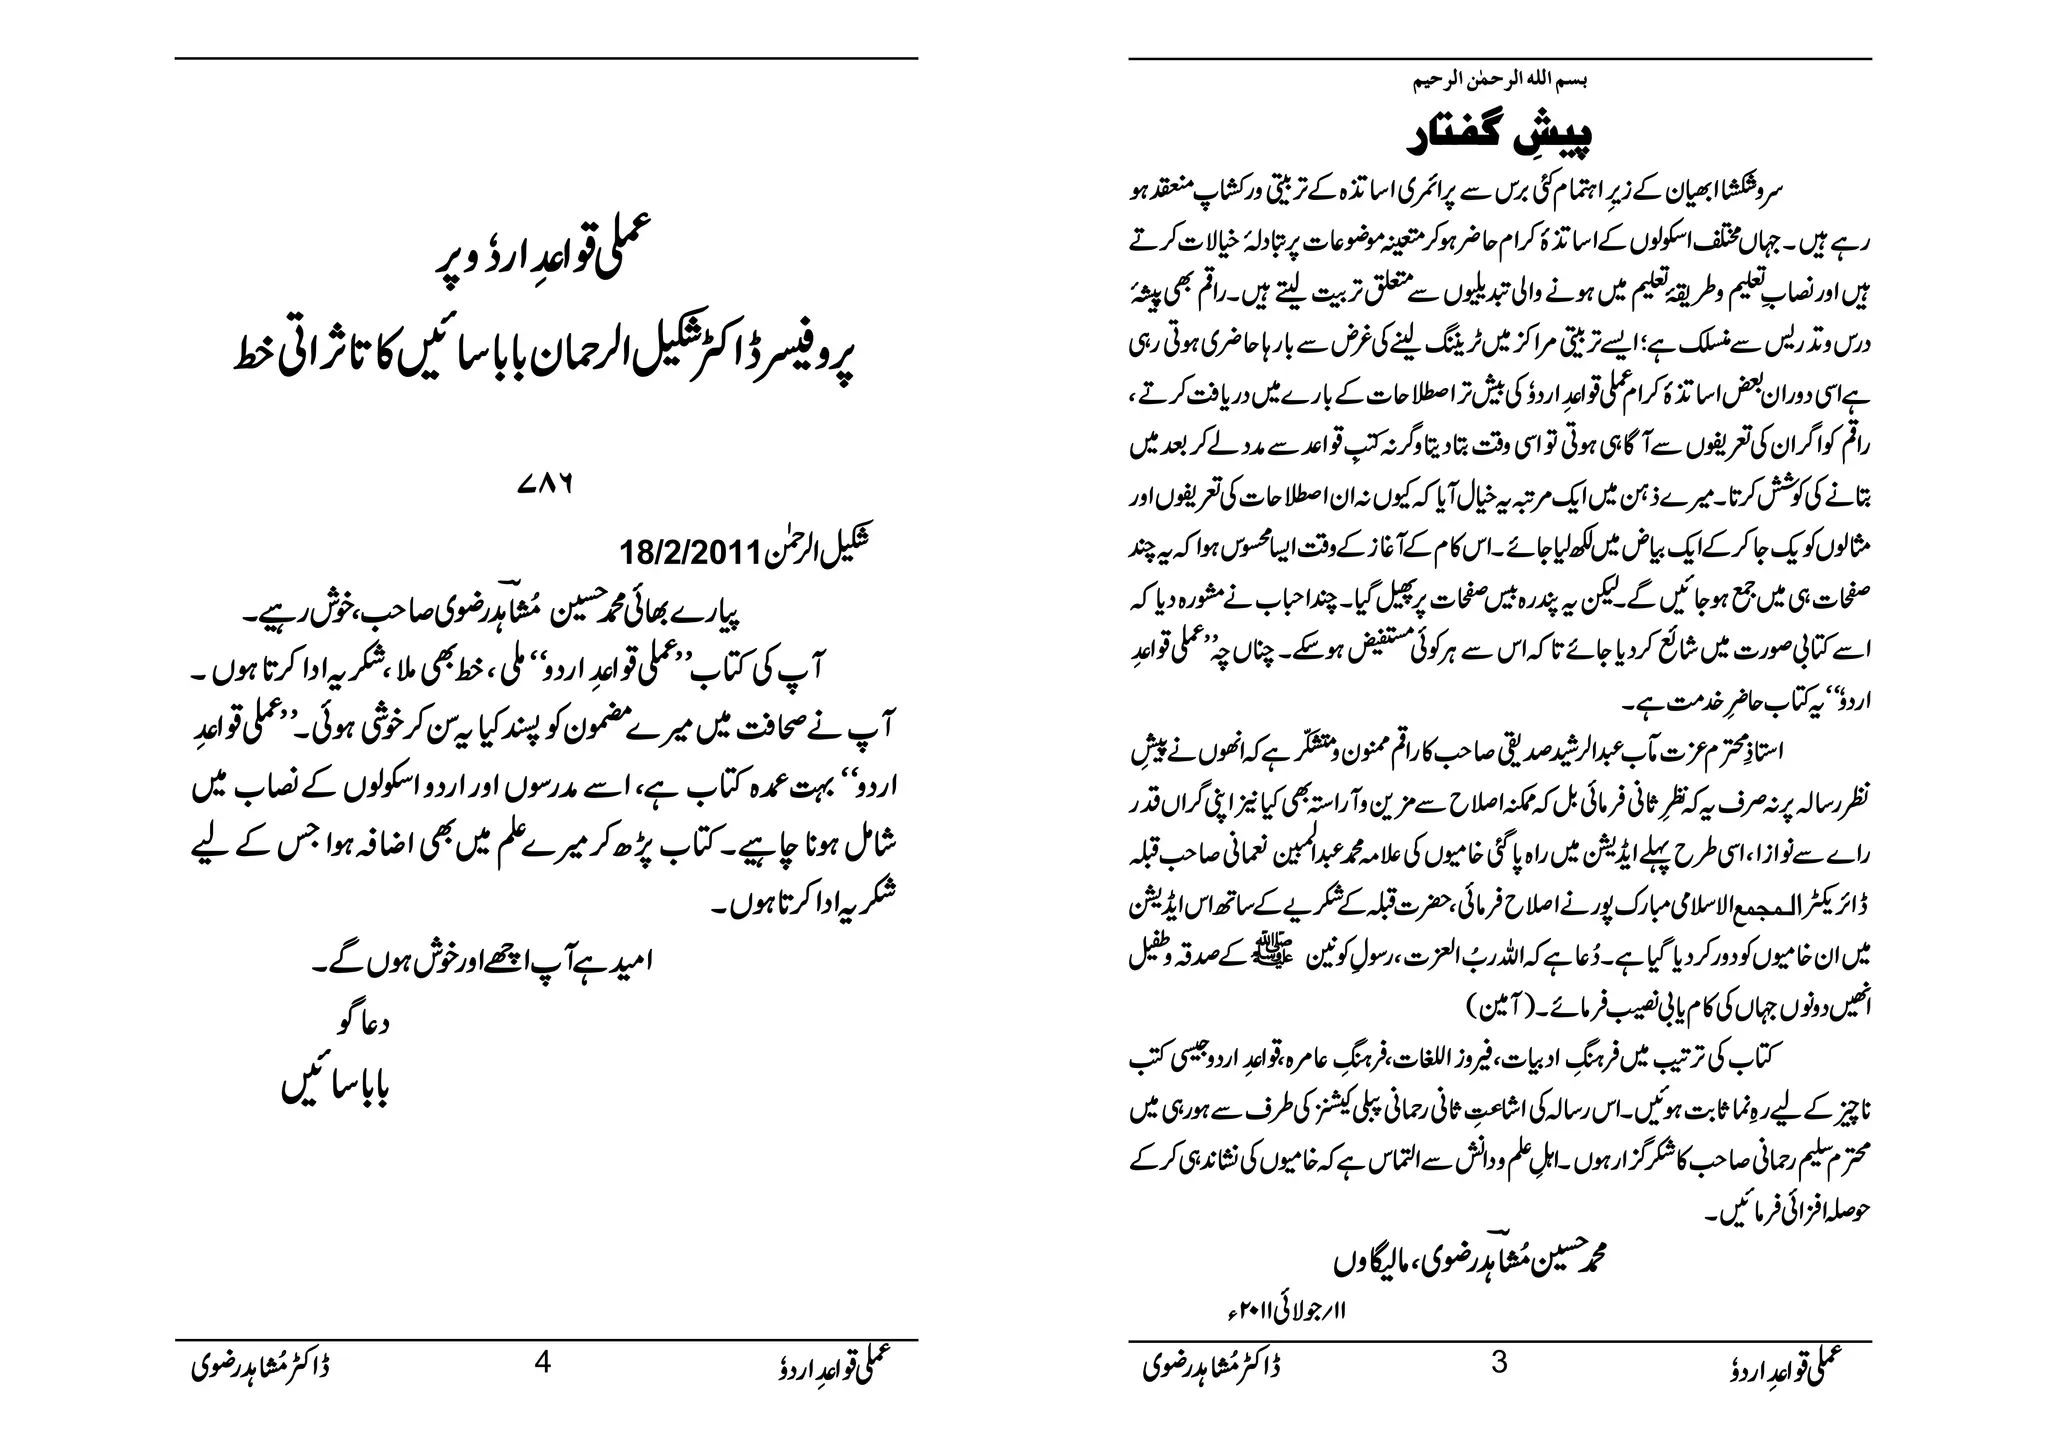 بسم الله الرحمٰن الرحیم
پیشِ گفتار
سروشکشا ابھیان کے زیرِ اہتمام کئی برس سے پرائمری اساتذہ کے تربیتی ورکشاپ منعقد ہو
رہے ہیں ۔ جہاں مختلف اسکولوں کے اساتذۂ کرام حاضر ہو کر متعینہ موضوعات پر تبادلۂ خیالات کرتے
ہیں اور نصابِ تعلیم و طریقۂ تعلیم میں ہونے والی تبدیلیوں سے متعلق تربیت لیتے ہیں ۔ راقم بھی پیشۂ
درس و تدریس سے منسلک ہے؛ ایسے تربیتی مراکز میں ٹریننگ لینے کی غرض سے بارہا حاضری ہوتی رہی
ہے اسی دوران بعض اساتذۂ کرام عملی قواعدِ اردوٗ کی بیش تر اصطلاحات کے بارے میں دریافت کرتے ،
راقم کو اگر ان کی تعریفوں سے آگاہی ہوتی تو اسی وقت بتا دیتا وگرنہ کتبِ قواعد سے مدد لے کر بعد میں
بتانے کی کوشش کرتا ۔ میرے ذہن میں ایک مرتبہ یہ خیال آیا کہ کیوں نہ ان اصطلاحات کی تعریفوں اور
مثالوں کو یک جا کر کے ایک بیاض میں لکھ لیا جائے ۔ اس کام کے آغاز کے وقت ایسا محسوس ہوا کہ یہ چند
صفحات ہی میں جمع ہو جائیں گے ۔ لیکن یہ پندرہ بیس صفحات پر پھیل گیا ۔ چند احباب نے مشورہ دیا کہ
اسے کتابی صورت میں شائع کر دیا جائے تا کہ اس سے ہر کوئی مستفیض ہو سکے ۔ چناں چہ ”عملی قواعدِ
اردوٗ“ یہ کتاب حاضرِ خدمت ہے ۔
استاذِ محترم عزت مآب عبدالرشید صدیقی صاحب کا راقم ممنون و متشکّر ہے کہ انھوں نے پیشِ
نظر رسالہ پر نہ صرف یہ کہ نظرِ ثانی فرمائی بل کہ ممکنہ اصلاح سے مزین و آراستہ بھی کیا نیز اپنی گراں قدر
راے سے نوازا ، اسی طرح پہلے ایڈیشن میں راہ پا گئی خامیوں کی علامہ محمد عبدالمبین نعمانی صاحب قبلہ
ڈائریکٹر المجمع الاسلامی مبارک پور نے اصلاح فرمائی ، حضرت قبلہ کے شکریے کے ساتھ اس ایڈیشن
میں ان خامیوں کو دور کر دیا گیا ہے ۔ دُعا ہے کہ اللہ ربُ العزت ، رسولِ کونین ﷺ کے صدقہ و طفیل
انھیں دونوں جہاں کی کام یابی نصیب فرمائے ۔ (آمین)
کتاب کی ترتیب میں فرہنگِ ادبیات ، فیروز اللغات ، فرہنگِ عامرہ ، قواعدِ اردو جیسی کتب
ناچیز کے لیے رہِ نما ثابت ہوئیں ۔ اس رسالہ کی اشاعتِ ثانی رحمانی پبلی کیشنز کی طرف سے ہو رہی میں
محترم سلیم رحمانی صاحب کا شکر گزار ہوں ۔ اہلِ علم و دانش سے التماس ہے کہ خامیوں کی نشاندہی کر کے
حوصلہ افزائی فرمائیں ۔
محمد حسین مُشاہدؔ رضوی ، مالیگاوں
۱۱/جولائی ۲۰۱۱ء
عملی قواعدِ اردوٗ 3 ڈاکٹر مُشاہد رضوی
عملی قواعدِ اردوٗ پر
پروفیسر ڈاکٹر شکیل الرحمان بابا سائیں کا تاثراتی خط
۷۸۶
شکیل الرحمٰن 18/2/2011
پیارے بھائی محمد حسین مُشاہدؔ رضوی صاحب ، خوش رہیے ۔
آپ کی کتاب ”عملی قواعدِ اردو“ ملی ، خط بھی ملا ، شکریہ ادا کرتا ہوں ۔
آپ نے صحافت میں میرے مضمون کو پسند کیا یہ سن کر خوشی ہوئی ۔ ”عملی قواعدِ
اردو“ بہت عمدہ کتاب ہے ، اسے مدرسوں اور اردو اسکولوں کے نصاب میں
شامل ہونا چاہیے ۔ کتاب پڑھ کر میرے علم میں بھی اضافہ ہوا جس کے لیے
شکریہ ادا کرتا ہوں ۔
امید ہے آپ اچھے اور خوش ہوں گے ۔
دعا گو
بابا سائیں
عملی قواعدِ اردوٗ 4 ڈاکٹر مُشاہد رضوی